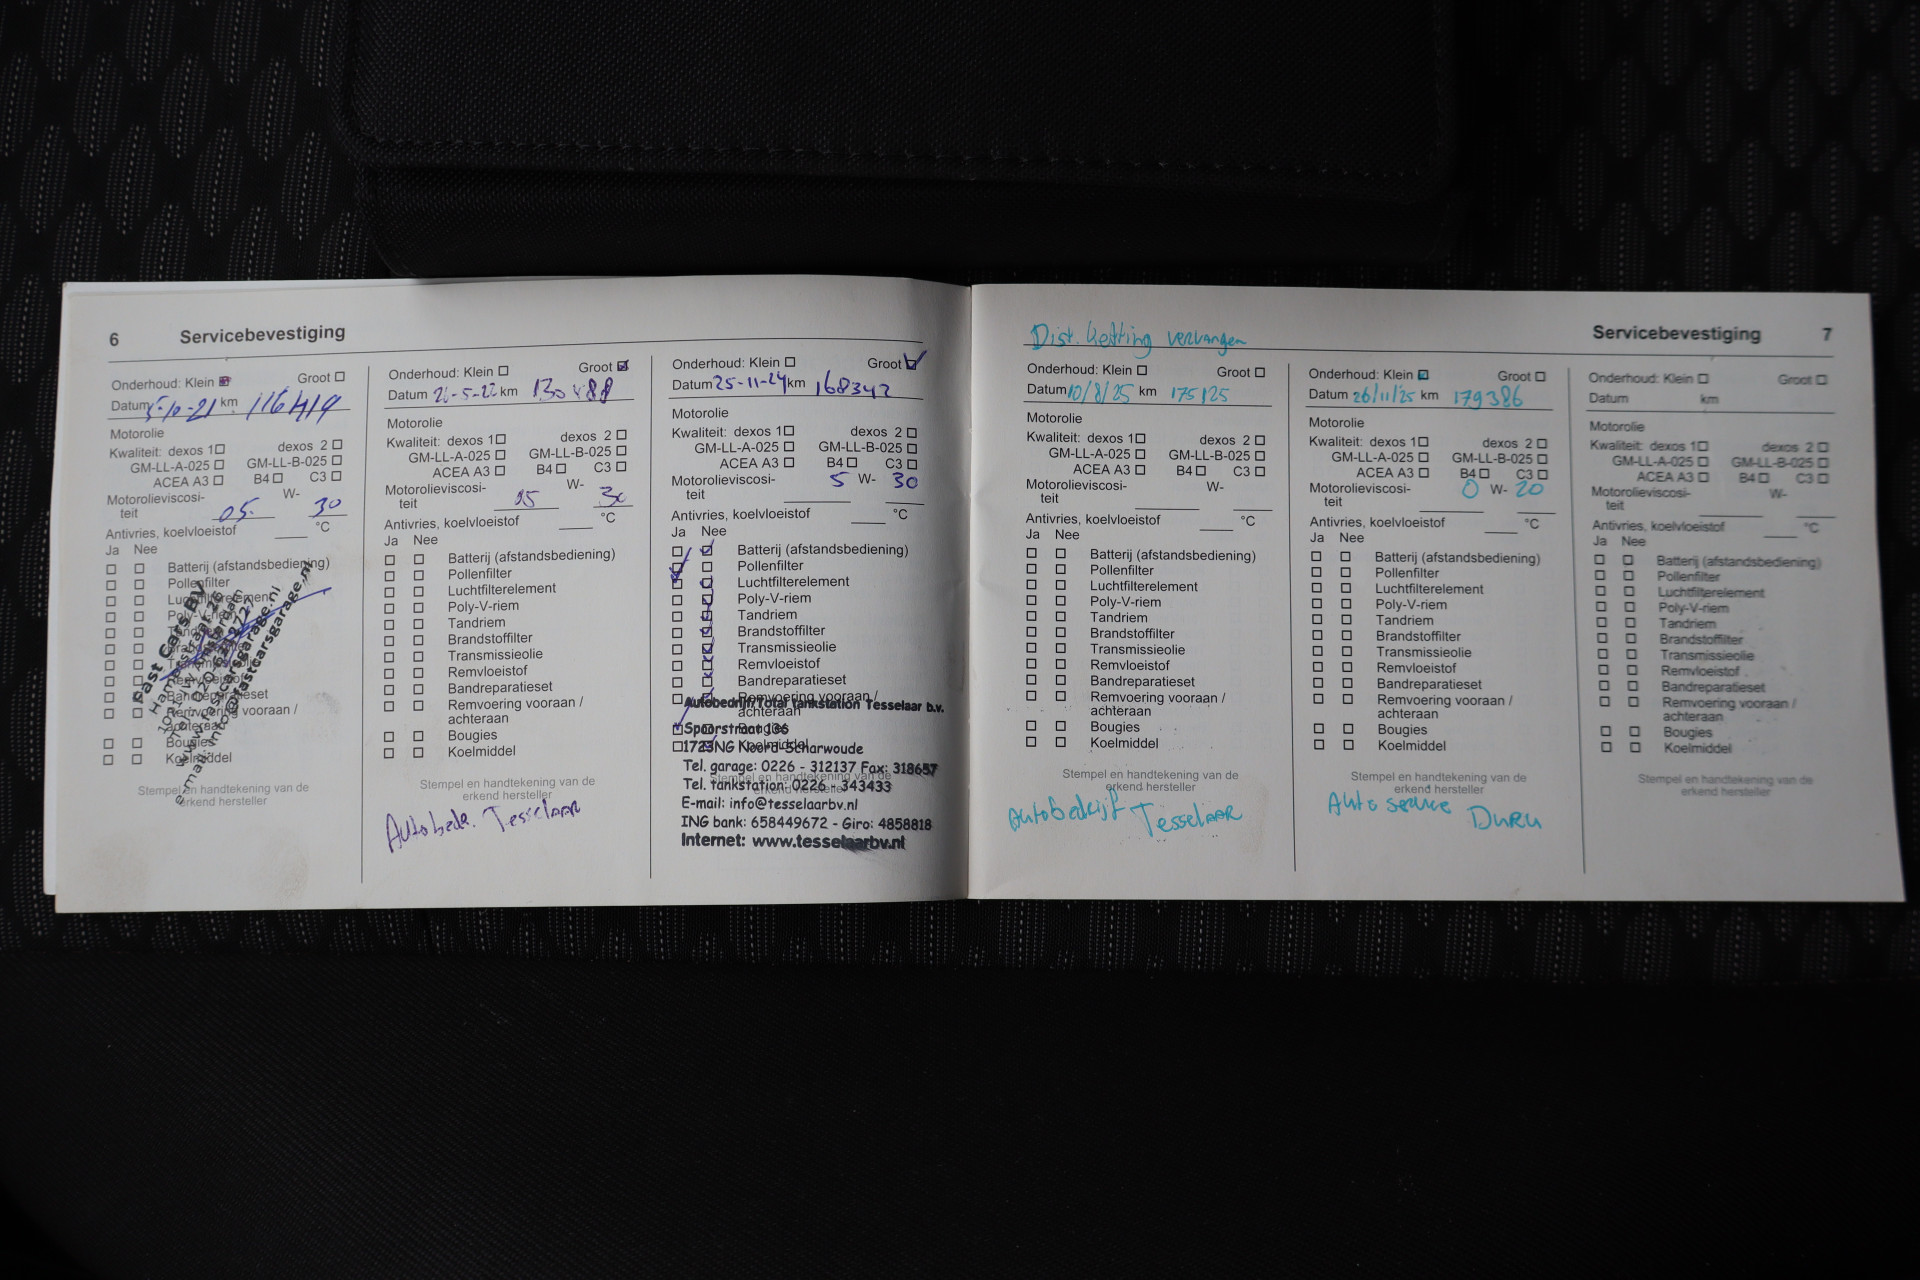 6 Servicebevestiging
Onderhoud: Klein Groot
Datum 5-10-21 km 116419
Motorolie
Kwaliteit: dexos 1 dexos 2
GM-LL-A-025 GM-LL-B-025
ACEA A3 B4 C3
Motorolieviscosi- W-
teit 05. 30
Antivries, koelvloeistof °C
Ja Nee
Batterij (afstandsbediening)
Pollenfilter
Luchtfilterelement
Poly-V-riem
Tandriem
Remvloeistof
Bandreparatieset
Remvoering vooraan /
achteraan
Bougies
Koelmiddel
Stempel en handtekening van de
erkend hersteller
Fast Cars BV
Onderhoud: Klein Groot
Datum 26-5-22 km 130488
Motorolie
Kwaliteit: dexos 1 dexos 2
GM-LL-A-025 GM-LL-B-025
ACEA A3 B4 C3
Motorolieviscosi- W-
teit 05 30
Antivries, koelvloeistof °C
Ja Nee
Batterij (afstandsbediening)
Pollenfilter
Luchtfilterelement
Poly-V-riem
Tandriem
Brandstoffilter
Transmissieolie
Remvloeistof
Bandreparatieset
Remvoering vooraan /
achteraan
Bougies
Koelmiddel
Stempel en handtekening van de
erkend hersteller
Autobedr. Tesselaar
Onderhoud: Klein Groot
Datum 25-11-24 km 168342
Motorolie
Kwaliteit: dexos 1 dexos 2
GM-LL-A-025 GM-LL-B-025
ACEA A3 B4 C3
Motorolieviscosi- 5 W- 30
teit
Antivries, koelvloeistof °C
Ja Nee
Batterij (afstandsbediening)
Pollenfilter
Luchtfilterelement
Poly-V-riem
Tandriem
Brandstoffilter
Transmissieolie
Remvloeistof
Bandreparatieset
Remvoering vooraan /
achteraan
Bougies
Koelmiddel
Stempel en handtekening van de
erkend hersteller
Autobedrijf/Total tankstation Tesselaar b.v.
Spoorstraat 136
1723NG Noord-Scharwoude
Tel. garage: 0226 - 312137 Fax: 318657
Tel. tankstation: 0226 - 343433
E-mail: info@tesselaarbv.nl
ING bank: 658449672 - Giro: 4858818
Internet: www.tesselaarbv.nl
Servicebevestiging 7
Dist. ketting vervangen
Onderhoud: Klein Groot
Datum 10/8/25 km 175125
Motorolie
Kwaliteit: dexos 1 dexos 2
GM-LL-A-025 GM-LL-B-025
ACEA A3 B4 C3
Motorolieviscosi- W-
teit
Antivries, koelvloeistof °C
Ja Nee
Batterij (afstandsbediening)
Pollenfilter
Luchtfilterelement
Poly-V-riem
Tandriem
Brandstoffilter
Transmissieolie
Remvloeistof
Bandreparatieset
Remvoering vooraan /
achteraan
Bougies
Koelmiddel
Stempel en handtekening van de
erkend hersteller
Autobedrijf Tesselaar
Onderhoud: Klein Groot
Datum 26/11/25 km 179386
Motorolie
Kwaliteit: dexos 1 dexos 2
GM-LL-A-025 GM-LL-B-025
ACEA A3 B4 C3
Motorolieviscosi- 0 W- 20
teit
Antivries, koelvloeistof °C
Ja Nee
Batterij (afstandsbediening)
Pollenfilter
Luchtfilterelement
Poly-V-riem
Tandriem
Brandstoffilter
Transmissieolie
Remvloeistof
Bandreparatieset
Remvoering vooraan /
achteraan
Bougies
Koelmiddel
Stempel en handtekening van de
erkend hersteller
Auto service Duru
Onderhoud: Klein Groot
Datum km
Motorolie
Kwaliteit: dexos 1 dexos 2
GM-LL-A-025 GM-LL-B-025
ACEA A3 B4 C3
Motorolieviscosi- W-
teit
Antivries, koelvloeistof °C
Ja Nee
Batterij (afstandsbediening)
Pollenfilter
Luchtfilterelement
Poly-V-riem
Tandriem
Brandstoffilter
Transmissieolie
Remvloeistof
Bandreparatieset
Remvoering vooraan /
achteraan
Bougies
Koelmiddel
Stempel en handtekening van de
erkend hersteller